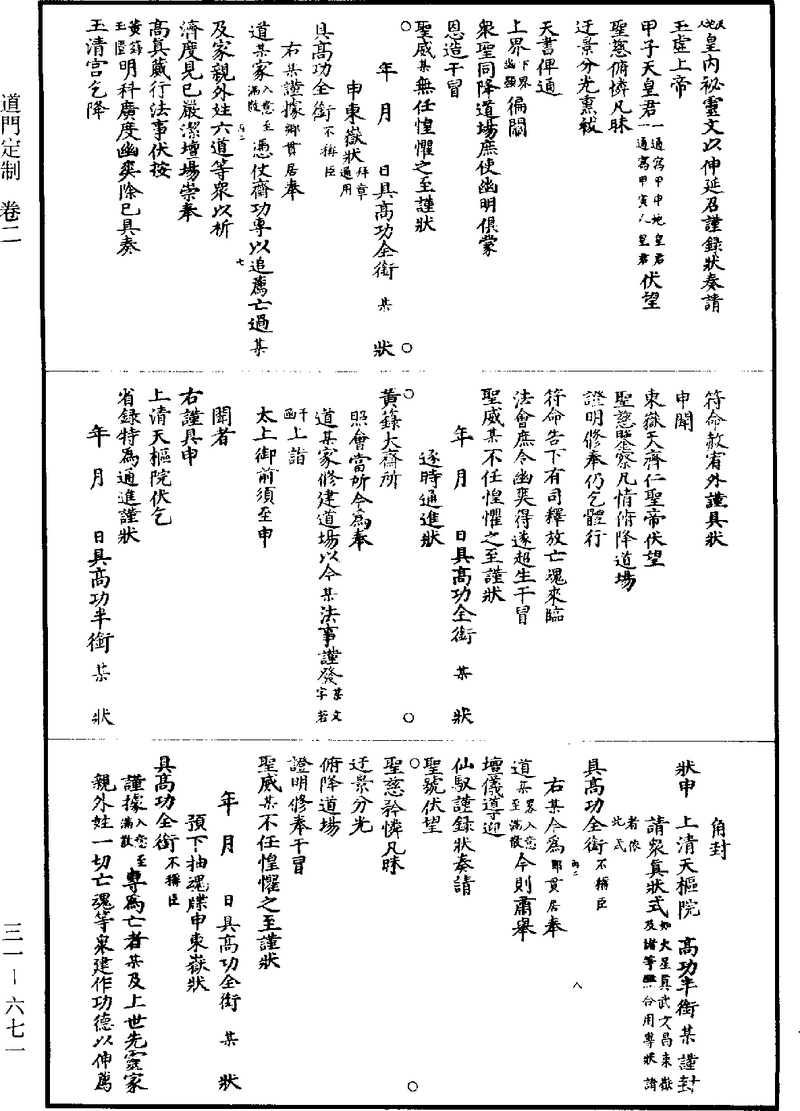 道門定制　卷二
三一—六七一
天地人皇內秘靈文以伸延召謹錄狀奏請
玉虛上帝
甲子天皇君一通寫甲申地皇君一通寫甲寅人皇君伏望
聖慈俯憐凡昧
迂景分光熏祓
天書俾通
上界下界幽顯徧關
衆聖同降道場庶使幽明俱蒙
恩造干冒
聖威某無任惶懼之至謹狀
○　年　月　日具高功全銜　某　狀　○
申東嶽狀拜章通用
具高功全銜不稱臣
右某謹據鄉貫居奉
道某家入意至滿散憑仗齋功專以追薦亡過某
及家親外姓六道等衆以祈
濟度見已嚴潔壇場崇奉
高真藏行法事伏按
黃籙玉匱明科廣度幽爽除已具奏
玉清宫乞降
符命赦宥外謹具狀
申聞
東嶽天齊仁聖帝伏望
聖慈鑒察凡情俯降道場
證明修奉仍乞體行
符命告下有司釋放亡魂來臨
法會庶令幽爽得遂超生干冒
聖威某不任惶懼之至謹狀
年　月　日具高功全銜　某　狀
逐時通進狀
○黃籙大齋所　○
照會當所今為奉
道某家修建道場以今某法事謹發某文字若
干函上詣
太上御前須至申
聞者
右謹具申
上清天樞院伏乞
省錄特為通進謹狀
年　月　日具高功半銜　某　狀
角封
狀申　上清天樞院　高功半銜某謹封
請衆真狀式如火星真武文昌東嶽及諸等聖合用專狀請者依此式
具高功全銜不稱臣
右某今為鄉貫居奉
道某界入意至滿散今則肅舉
壇儀導迎
仙馭謹錄狀奏請
聖號伏望
○　○
聖慈矜憐凡昧
迂景分光
俯降道場
證明修奉干冒
聖威某不任惶懼之至謹狀
年　月　日具高功全銜　某　狀
預下抽魂牒申東嶽狀
具高功全銜不稱臣
謹據入意至滿散專為亡者某及上世先靈家
親外姓一切亡魂等衆建作功德以伸薦